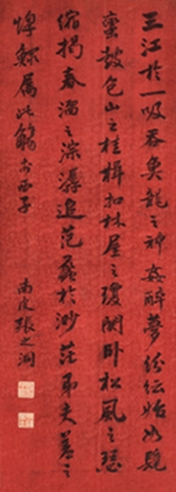 三江於一吸吞魚龍之神姦醉夢紛紜始如髦
蠻鼓包山之桂楫扣林屋之瓊關臥松風之瑟
縮揭春溜之淙潺追范蠡於渺茫弔夫差之
惸鰥屬此觴於西子
南皮張之洞